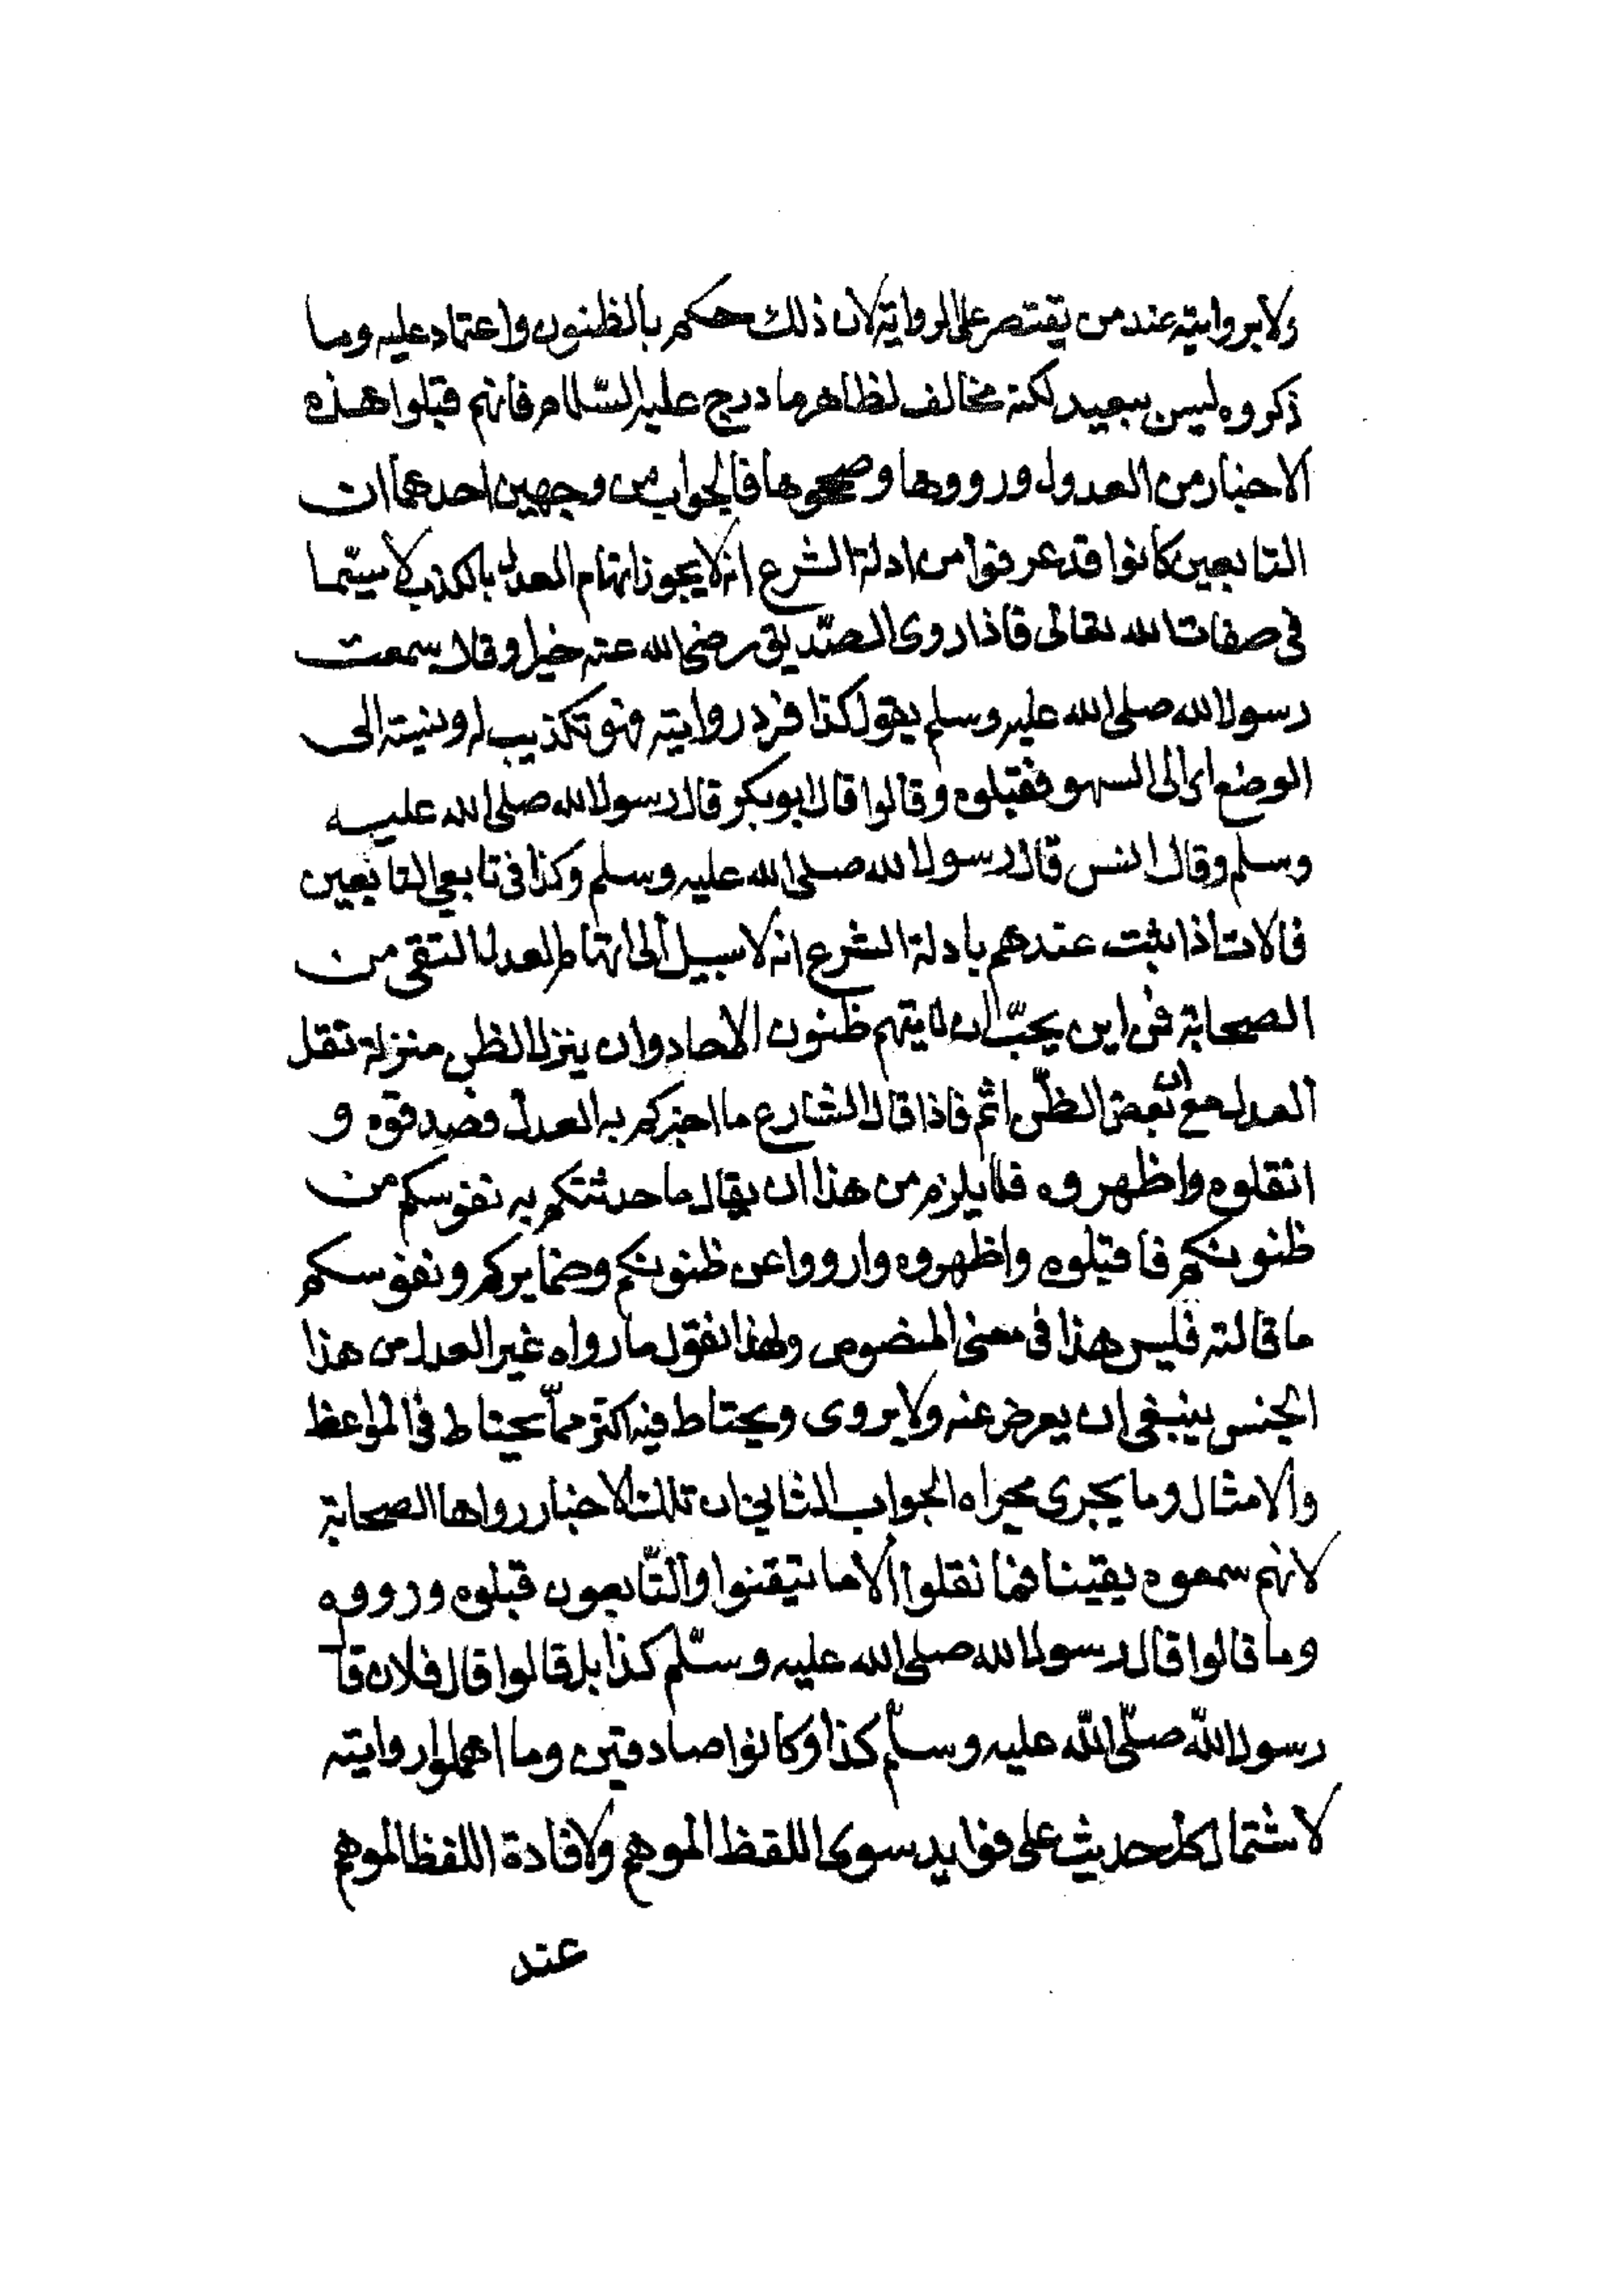 ولا بروايته عند من يقتصر على الرواية لان ذلك حكم بالظنون واعتماد عليه وما
ذكروه ليس ببعيد لكنه مخالف لظاهر ما درج عليه السّلام فانهم قبلوا هذه
الاخبار من العدول ورووها وصححوها فالجواب من وجهين احدهما ان
التابعين كانوا قد عرفوا من ادلة الشرع انه لا يجوز اتهام العدل بالكذب لا سيّما
في صفات الله تعالى فاذا روى الصّديق رضى الله عنه خبرا وقال سمعت
رسول الله صلى الله عليه وسلم يقول كذا فرد روايته فهو تكذيب له ونسبته الى
الوضع او الى السهو فقبلوه وقالوا قال ابو بكر قال رسول الله صلى الله عليه
وسلم وقال انس قال رسول الله صلى الله عليه وسلم وكذا في تابعي التابعين
فالان اذا ثبت عندهم بادلة الشرع انه لا سبيل الى اتهام العدل التقى من
الصحابة فمن اين يجبّ ان لا يتهم ظنون الاحاد وان ينزل الظن منزلة نقل
العدل مع ان بعض الظنّ اثم فاذا قال الشارع ما اخبركم به العدل فصدقوه و
انقلوه واظهروه فلا يلزم من هذا ان يقال ما حدثتكم به نفوسكم من
ظنونكم فاقبلوه واظهروه وارووا عن ظنونكم وضمايركم ونفوسكم
ما قالته فليس هذا في معنى المنصوص ولهذا نقول ما رواه غير العدل من هذا
الجنس ينبغى ان يعرض عنه ولا يروى ويحتاط فيه اكثر ممّا يحتاط في المواعظ
والامثال وما يجرى مجراه الجواب الثاني ان تلك الاخبار رواها الصحابة
لانهم سمعوه يقينا فما نقلوا الا ما تيقنوا والتّابعون قبلوه ورووه
وما قالوا قال رسول الله صلى الله عليه وسّلم كذا بل قالوا قال فلان قا
رسول اللّه صلّى اللّه عليه وسلّم كذا وكانوا صادقين وما اهملوا روايته
لاشتمال كل حديث على فوايد سوى اللفظ الموهم ولافادة اللفظ الموهم
عند